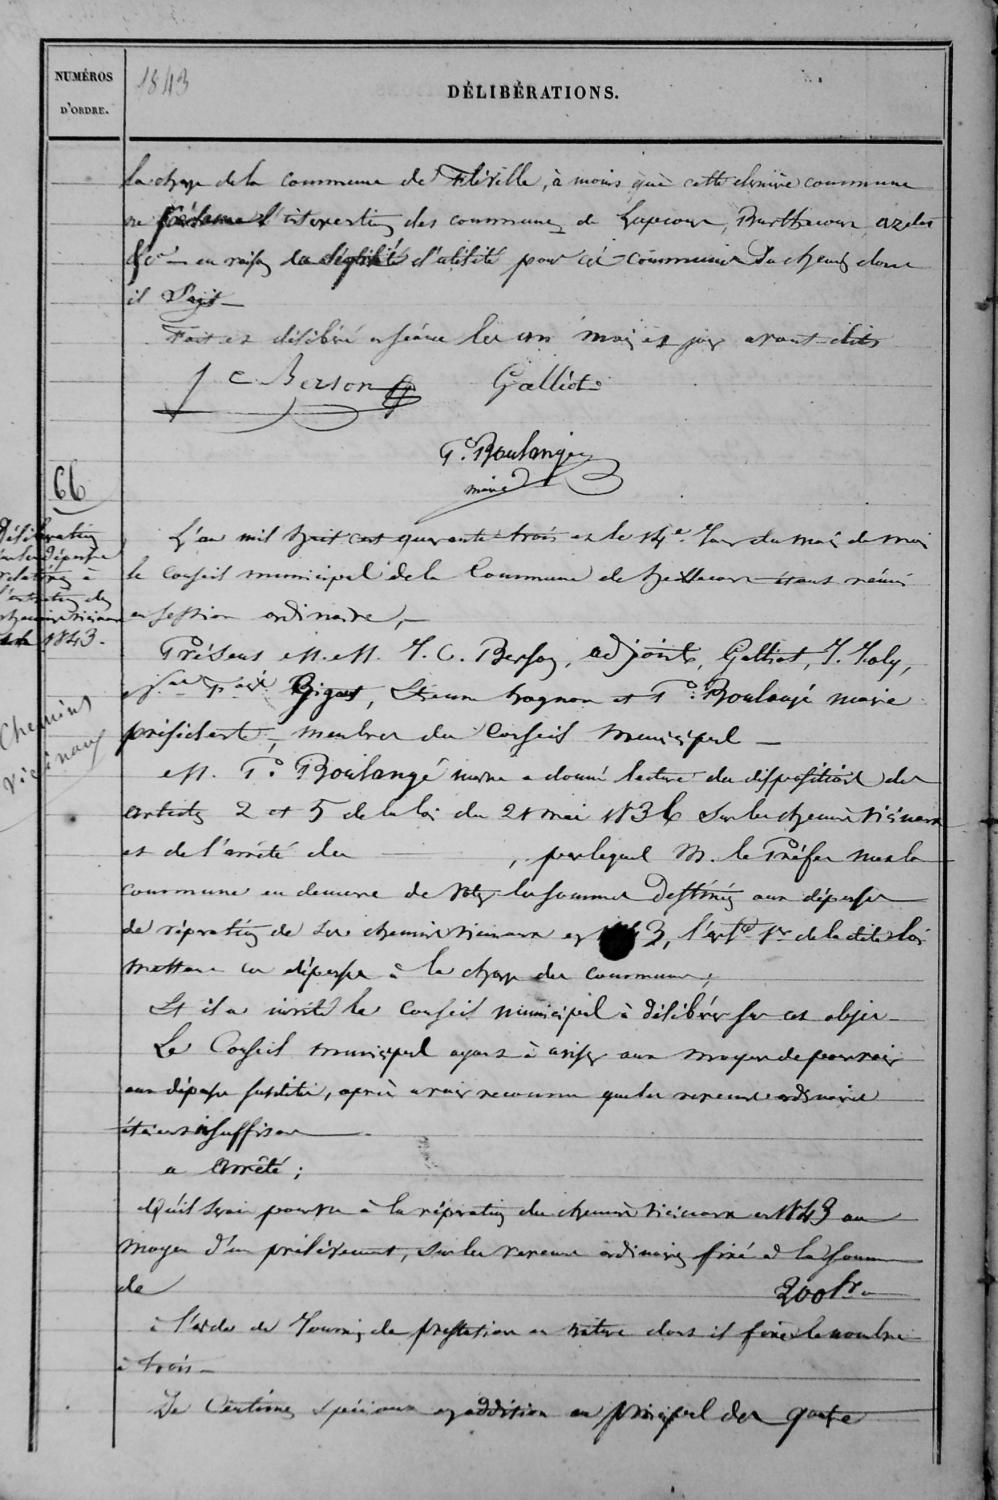 NUMÉROS
D'ORDRE.
1843
DÉLIBÉRATIONS.
la charge de la commune de Fléville, à moins que cette dernière commune
ne réclame l'intervention des communes de Lupcourt, Burthecourt, Azelot
&c° — en raison la d'utilité pour ces communes du chemin dont
il s'agit —
Fait et délibéré en séance les an mois et jour avant dits
J C Berson Galliot
F.s Boulangé
maire
66
Délibération
sur les dépenses
relatives à
l'entretien des
chemins vicinaux
de 1843.
Chemins
vicinaux
L'an mil huit cent quarante trois et le 14e. Jour du mois de mai
le conseil municipal de la Commune de heillecourt étant réuni
en session ordinaire, —
Présens M.M. J. C. Berson, adjoint, Galliot, J. Joly,
Bigot, Etienne hagnon et F.s Boulangé maire
président, membres du Conseil municipal —
M. F.s Boulangé maire a donné lecture des dispositions des
articles 2 et 5 de la loi du 21 mai 1836 sur les chemins vicinaux
et de l'arrêté du , par lequel M. le Préfet met la
commune en demeure de voter les sommes destinées aux dépenses
de réparation de ses chemins vicinaux en 1843, l'art.e 1er de la dite loi
mettant ces dépenses à la charge des communes;
Et il a invité le Conseil municipal à délibérer sur cet objet —
Le Conseil municipal ayant à aviser aux moyens de pourvoir
aux dépenses susdites, après avoir reconnu que les revenus ordinaires
étaient insuffisans —
a arrêté;
Qu'il serait pourvu à la réparation des chemins vicinaux en 1843 au
moyen d'un prélèvement, sur les revenus ordinaires fixé à la somme
de 200 fr. —
à l'aide de Journées de prestation en nature dont il fixe le nombre
à trois —
De Centimes spéciaux en addition au principal des quatre